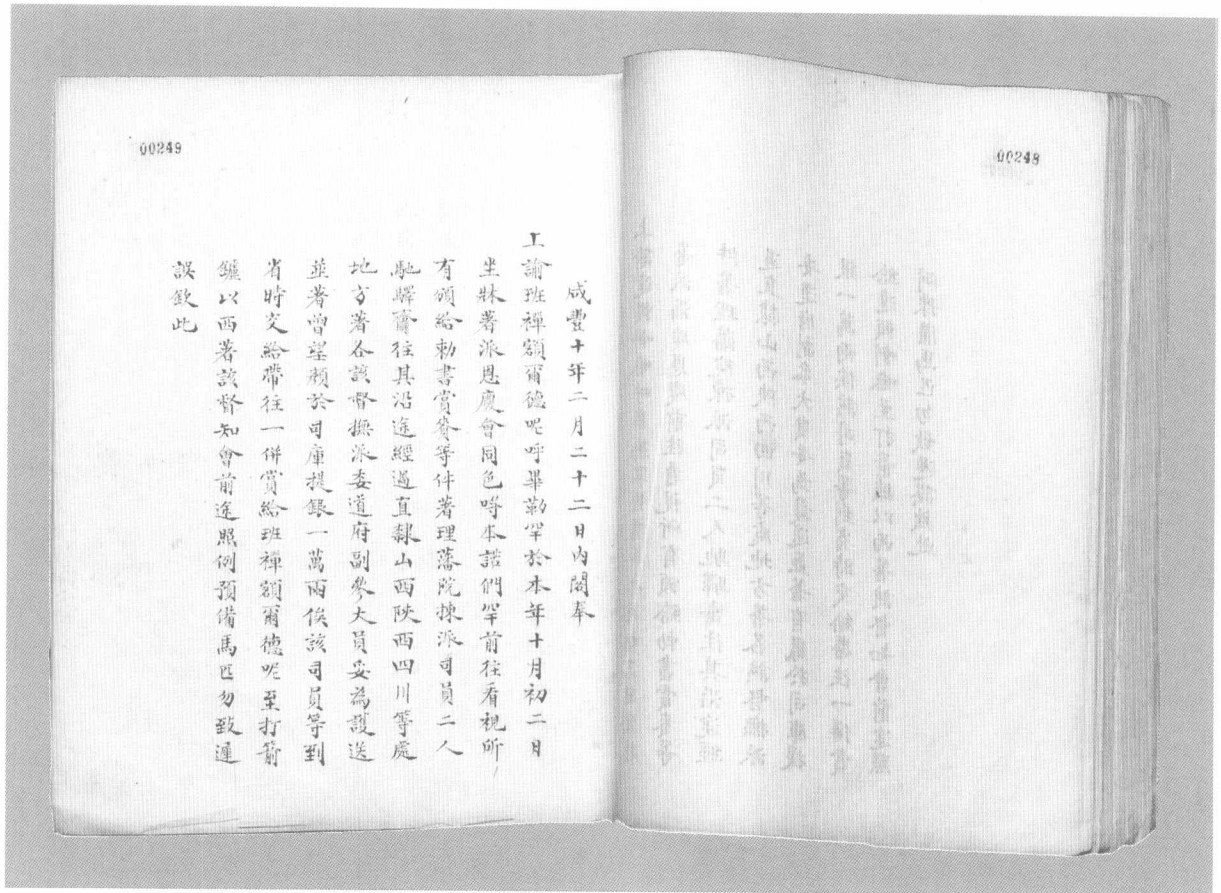 00249
咸豐十年二月二十二日內閣奉
上諭班禪額爾德呢呼畢勒罕於本年十月初二日
坐牀著派恩慶會同色呼本諾們罕前往看視所
有頒給勅書賞賚等件著理藩院揀派司員二人
馳驛齎往其沿途經過直隸山西陝西四川等處
地方著各該督撫派委道府副參大員妥為護送
並著曾望顏於司庫提銀一萬兩俟該司員等到
省時交給帶往一併賞給班禪額爾德呢至打箭
鑪以西著該督知會前途照例預備馬匹勿致遲
誤欽此
00248